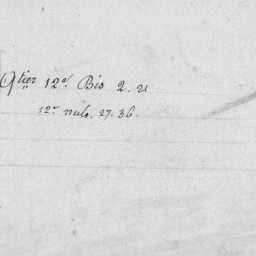 Qtier 12e. Bis 2. u
12e nulo. 27. 36.